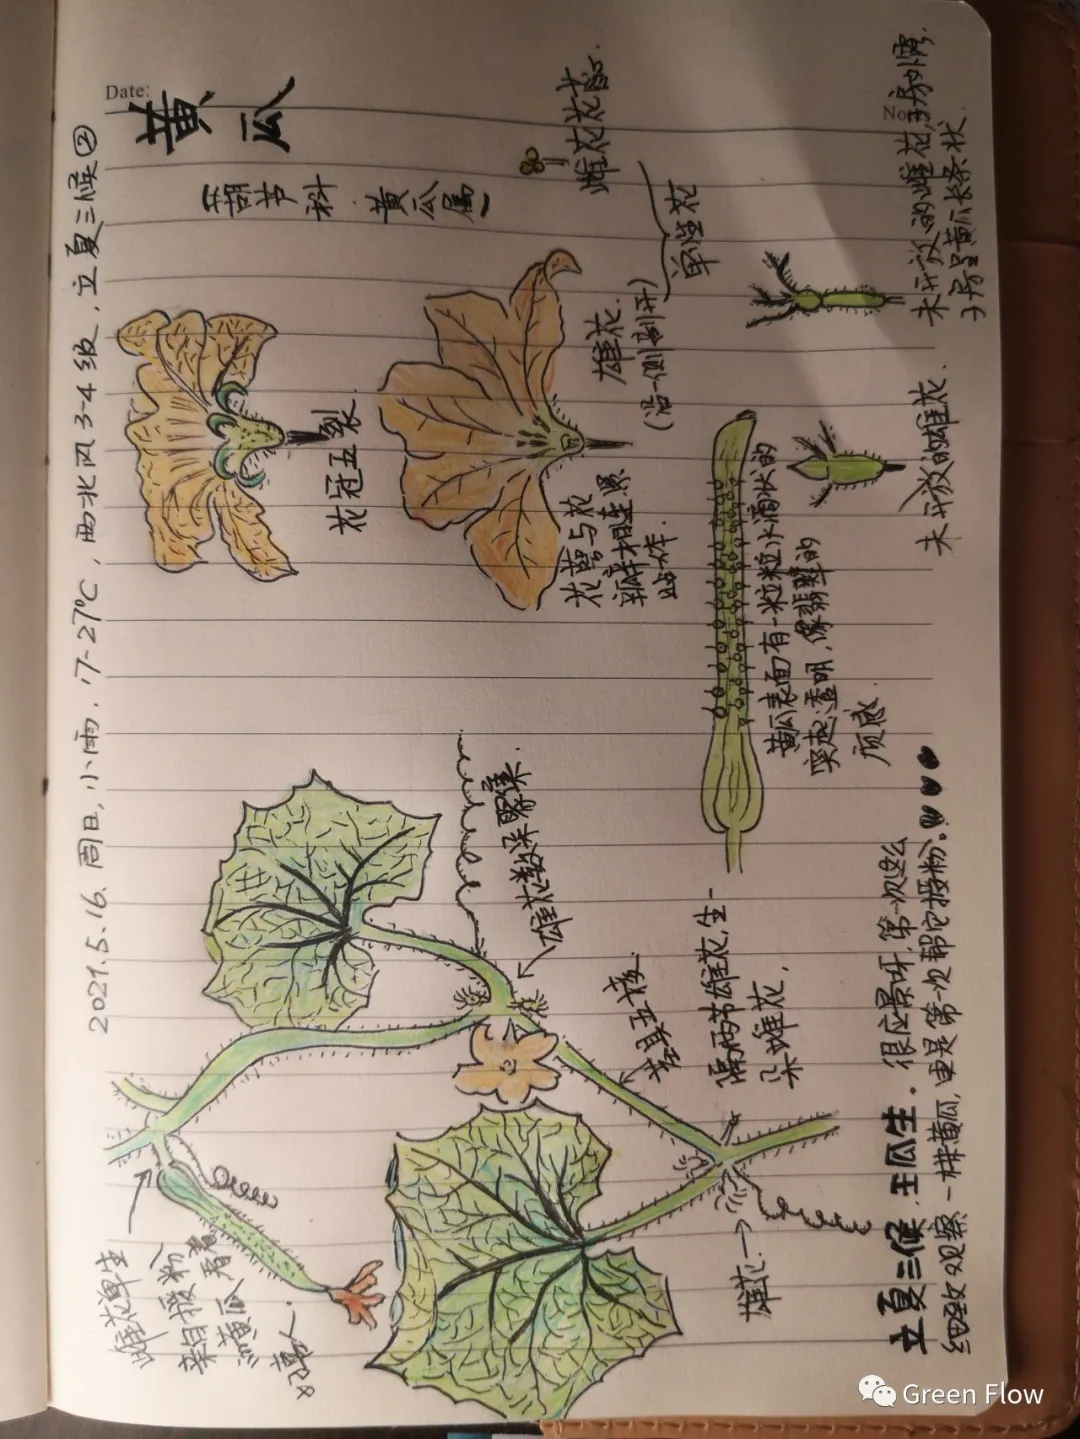 Date:
No.
2021.5.16. 周日, 小雨, 17-27℃, 西北风3-4级, 立夏三候②
黄瓜
(葫芦科 黄瓜属)
花冠五裂
雌花花蕊.
雄花.
(沿一侧剖开)
单性花
花萼与花
瓣相连,果
未开放的雌花,子房外露.
子房呈黄瓜长条状
未开放的雄花.
黄瓜表面有一粒粒水滴状的
突起;透明,像翡翠的
质感.
雄花数朵聚集.
茎具五棱.
隔两节雄花,生一
朵雌花.
雄花.
雌花单生
亲自授粉,
黄瓜
立夏三候.王瓜生. 很应景呀,第一次这么
细致观察一株黄瓜,更是第一次帮它授粉。
Green Flow